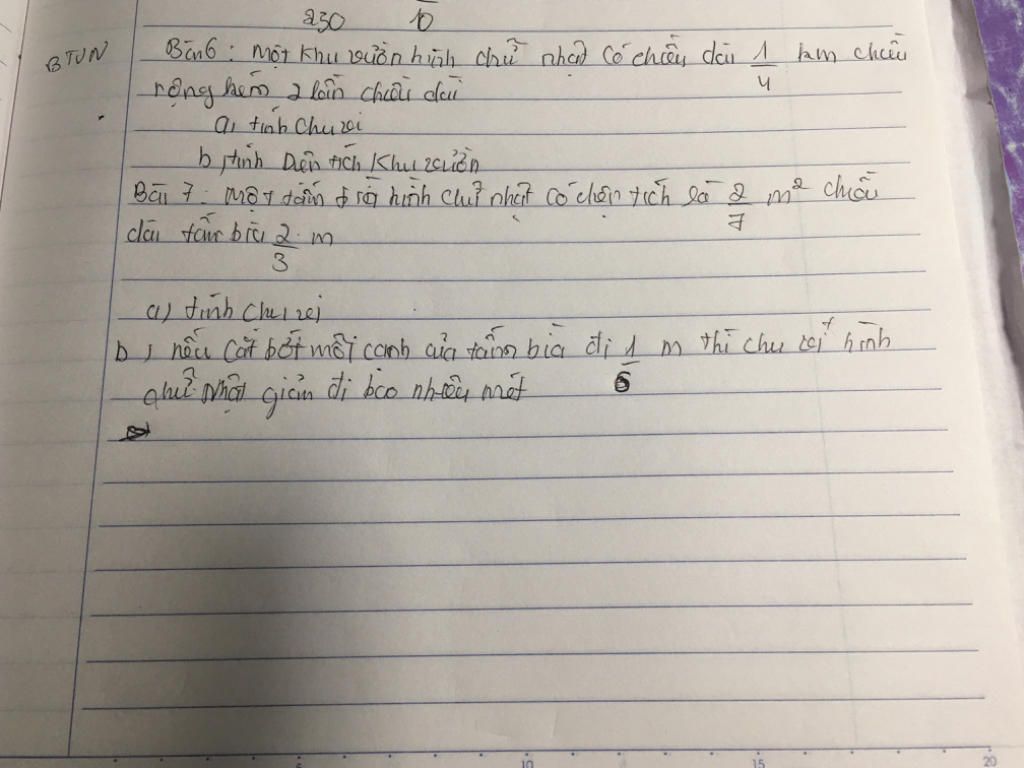 230 10
BTVN Bài 6: Một khu vườn hình chữ nhật có chiều dài 1/4 km chiều
rộng kém 2 lần chiều dài
a, tính chu vi
b, tính Diện tích khu vườn
Bài 7: Một tấm bìa hình chữ nhật có diện tích là 2/7 m² chiều
dài tấm bìa 2/3 m
a) tính chu vi
b, nếu cắt bớt mỗi cạnh của tấm bìa đi 1/6 m thì chu vi hình
chữ nhật giảm đi bao nhiêu mét